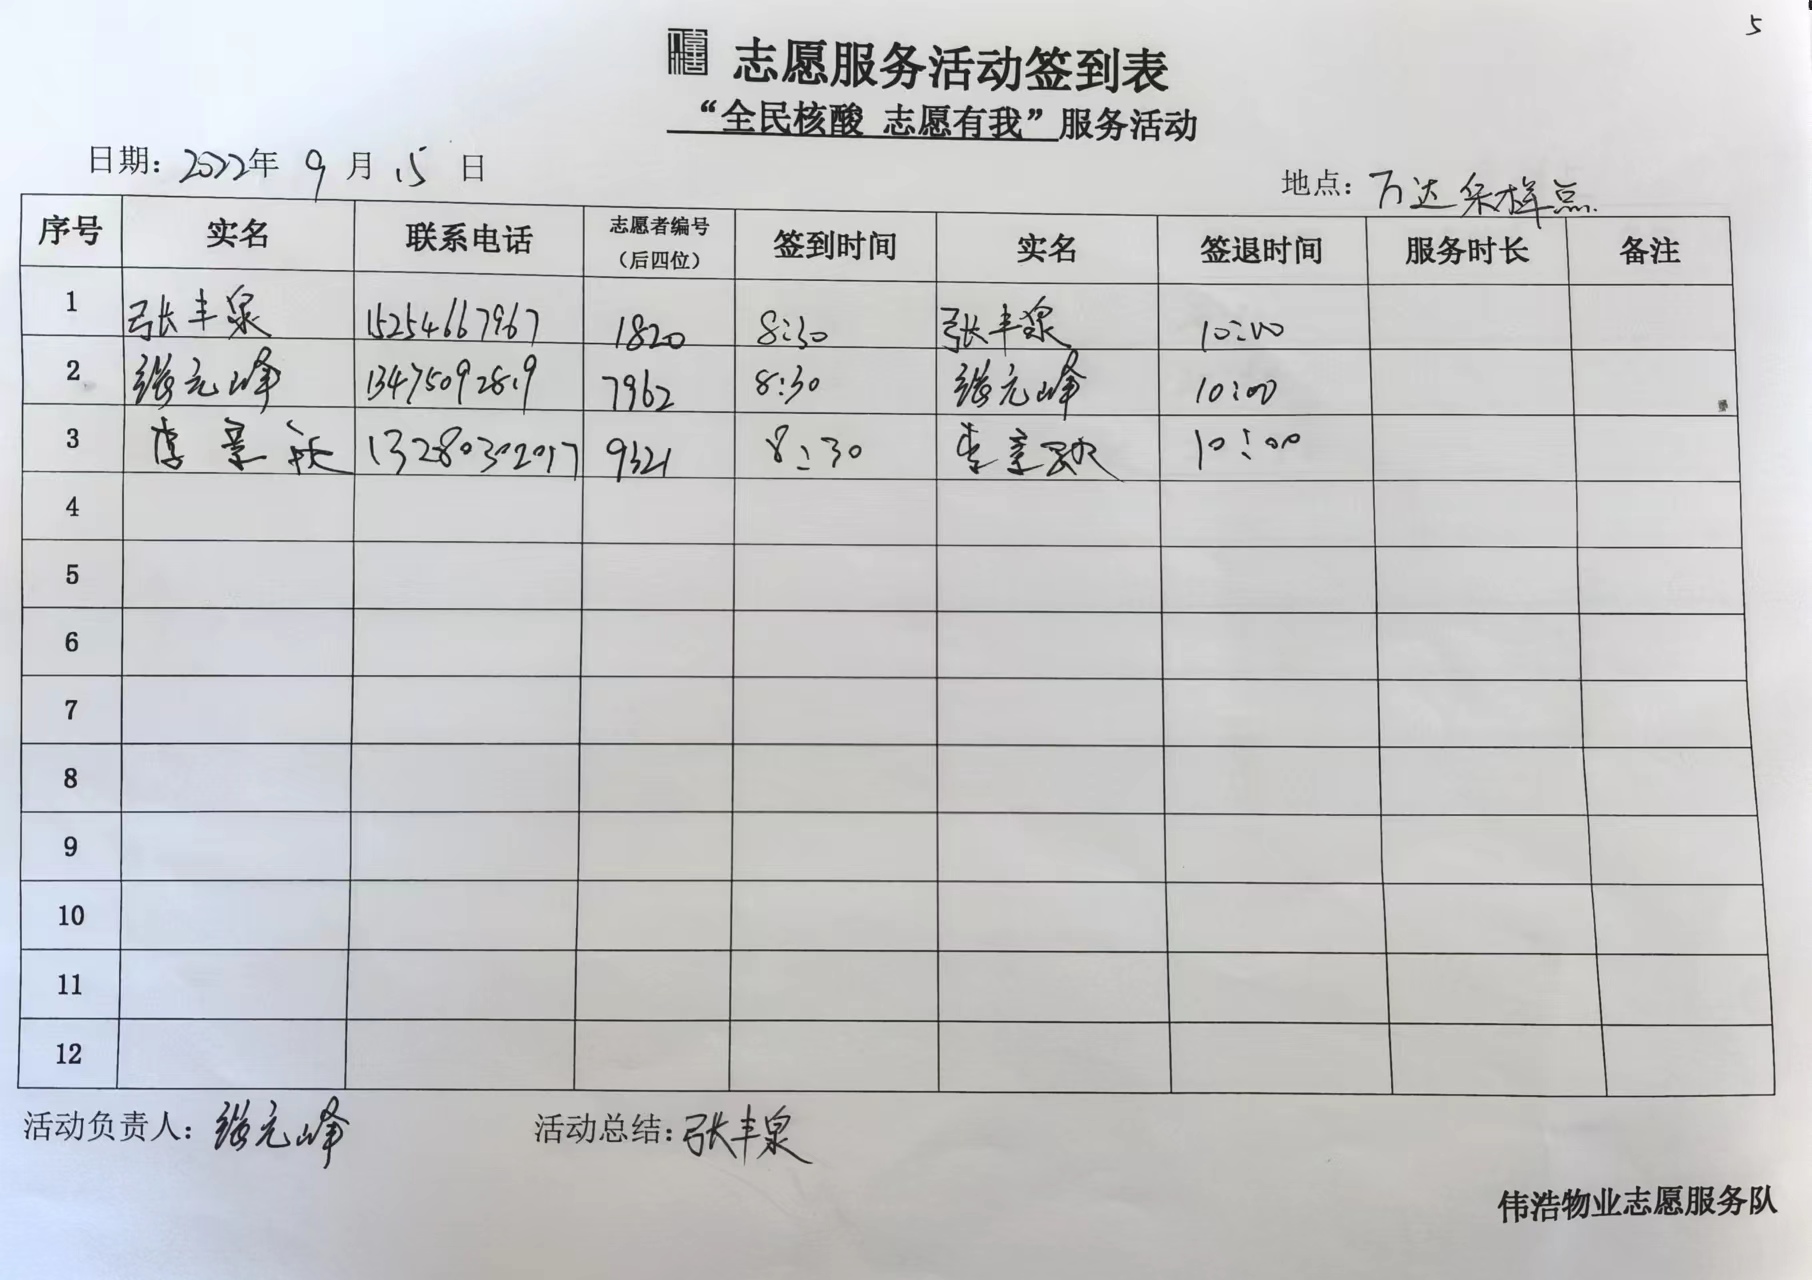 5
志愿服务活动签到表
“全民核酸 志愿有我”服务活动
日期：2022年 9 月 15 日
地点：万达采样点.
序号 实名 联系电话 志愿者编号（后四位） 签到时间 实名 签退时间 服务时长 备注
1 张丰泉 15254667967 1820 8:30 张丰泉 10:00
2 元峰 13475092819 7962 8:30 元峰 10:00
3 李 13280302017 9321 8:30 李 10:00
4
5
6
7
8
9
10
11
12
活动负责人：元峰 活动总结：张丰泉
伟浩物业志愿服务队